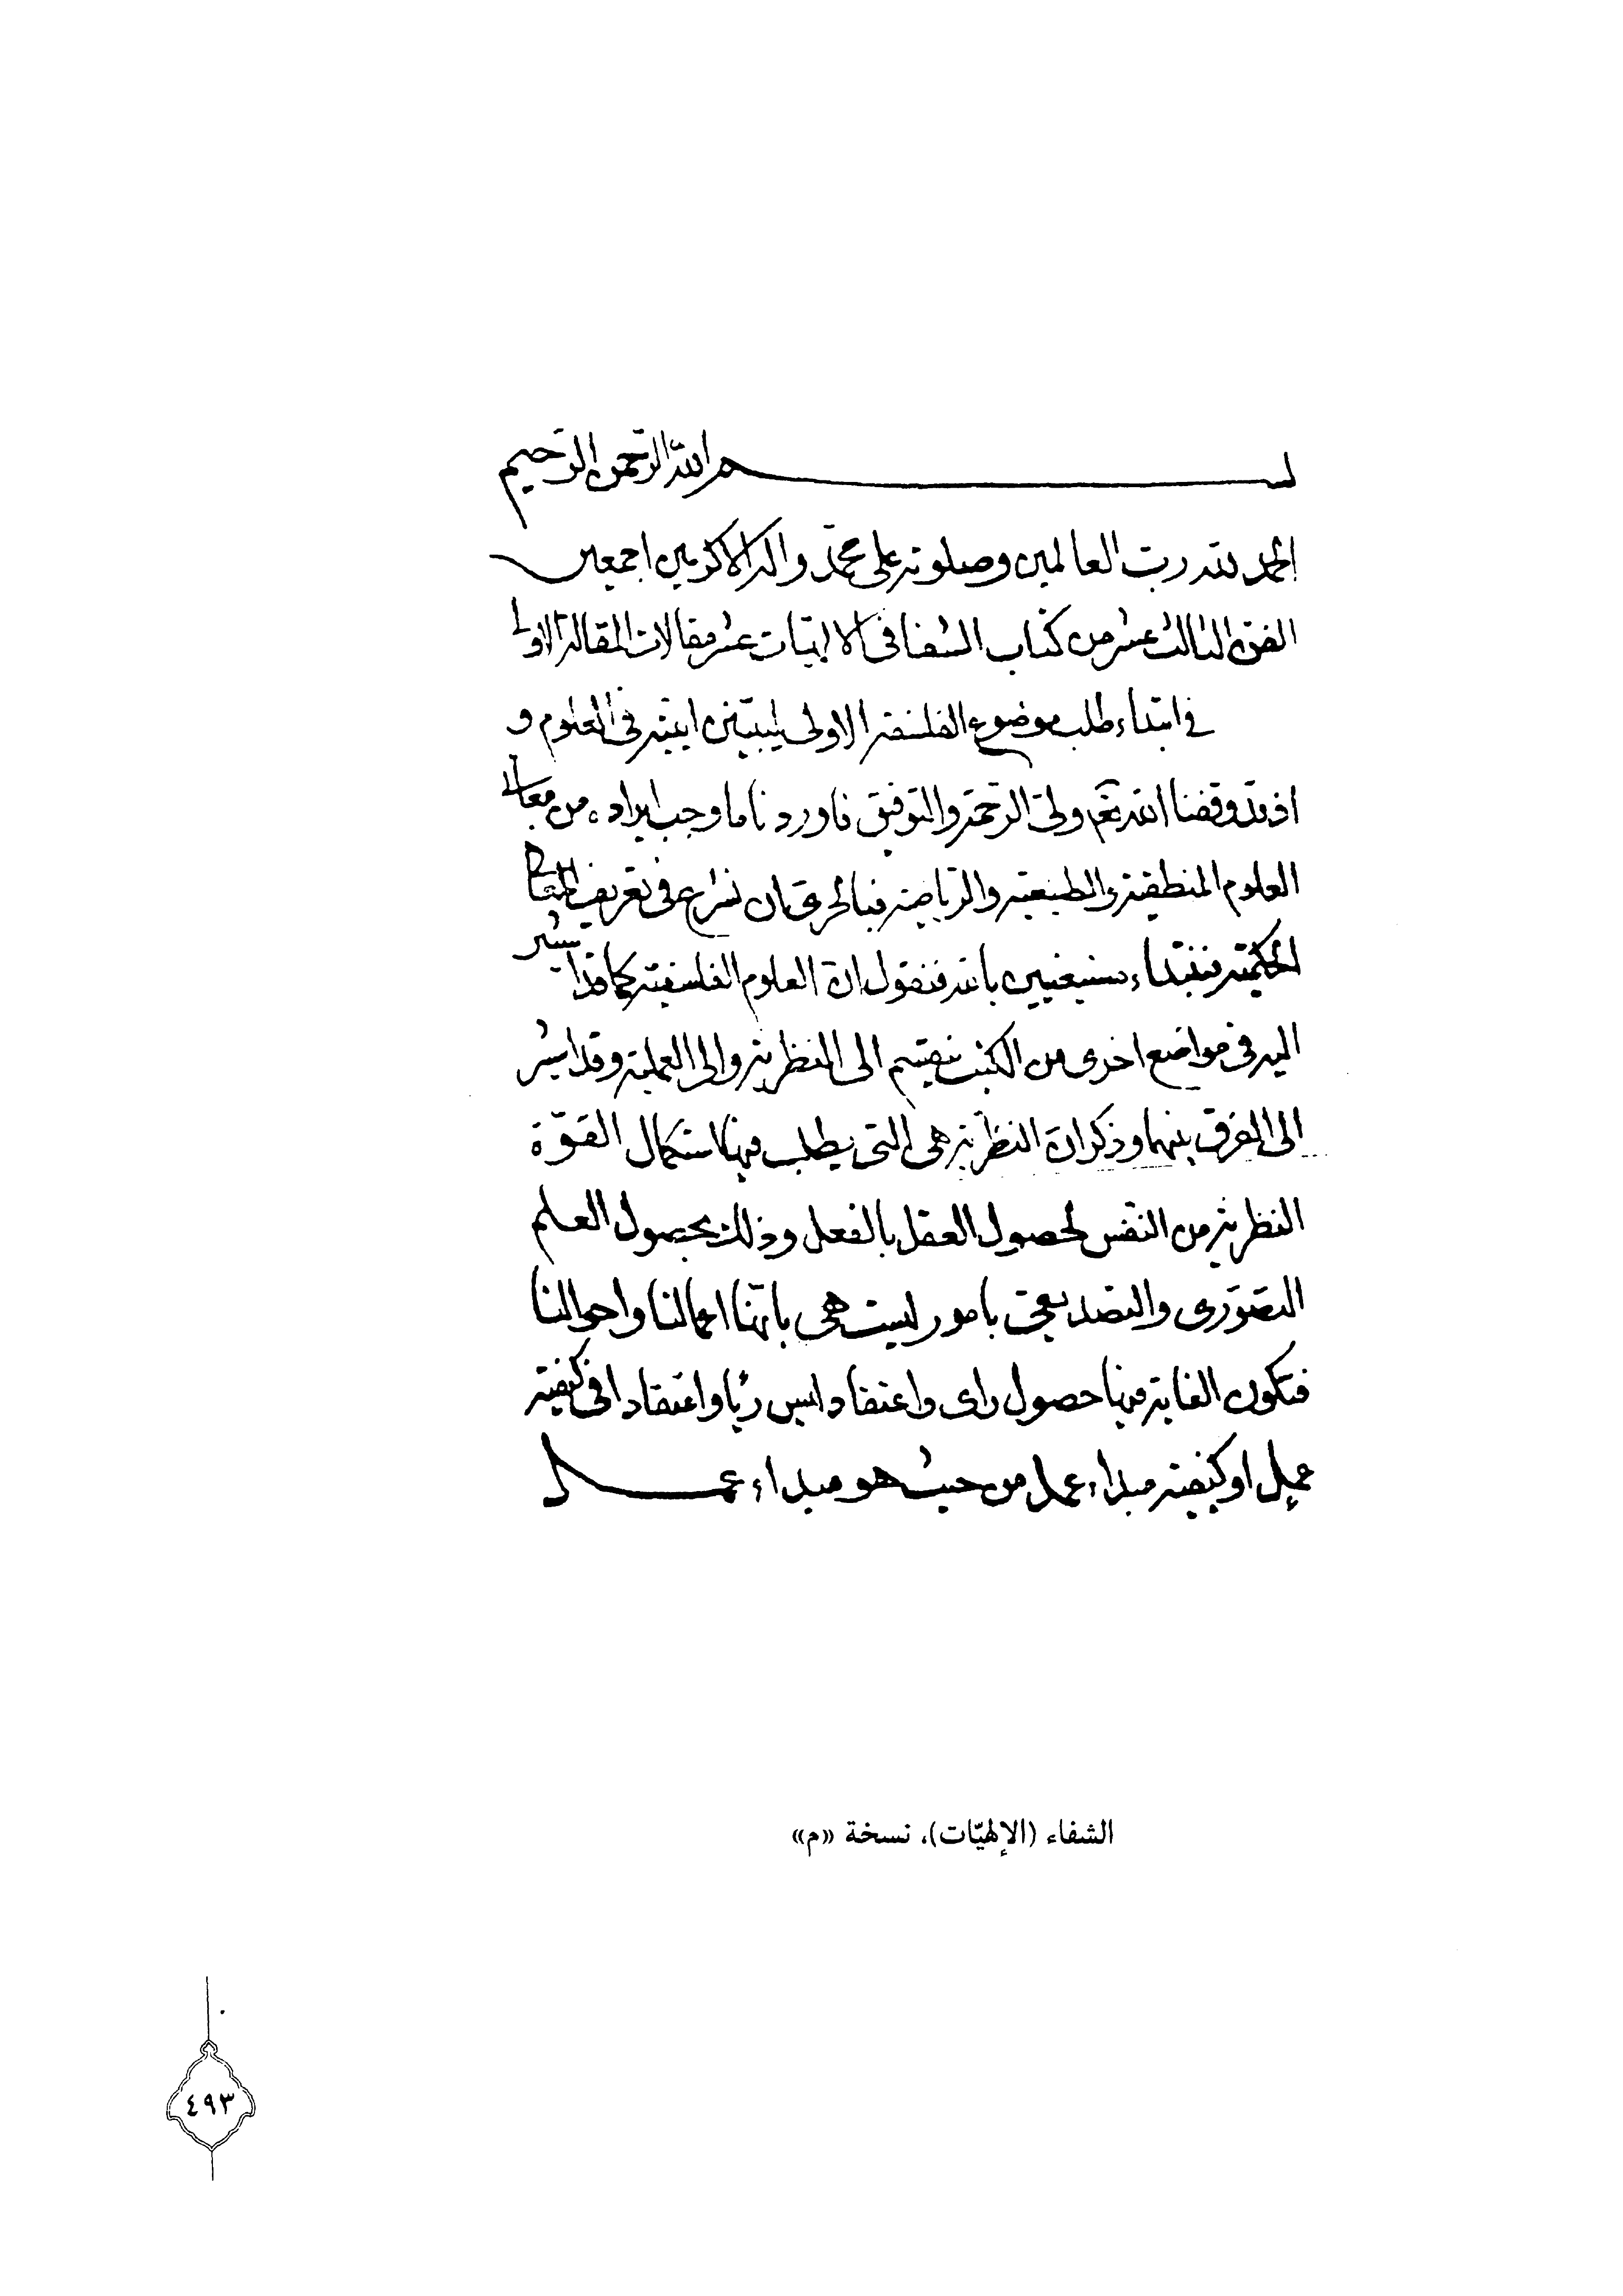 بسم الله الرحمن الرحیم
الحمد لله رب العالمین وصلوته علی محمد واله الاکرمین اجمعین
الفن الثالث عشر من کتاب الشفا فی الالهیات عشر مقالات المقالة الاولی
فی ابتداء طلب موضوع الفلسفة الاولی لیتبین انیته فی العلوم و
اذ قد وفقنا الله ولی الرحمة والتوفیق فاوردنا ما وجب ایراده من معانی
العلوم المنطقیة والطبیعیة والریاضیة فبالحری ان نشرع فی تعریف المعانی
الحکمیة فنبتداء مستعینین بالله فنقول ان العلوم الفلسفیة کما قد اشیر
الیه فی مواضع اخری من الکتب ینقسم الی النظریة والی العملیة وقد اشیر
الی الفرق بینهما وذکر ان النظریة هی التی یطلب فیها استکمال القوة
النظریة من النفس لحصول العقل بالفعل وذلک بحصول العلم
التصوری والتصدیقی بامور لیست هی بانها اعمالنا واحوالنا
فتکون الغایة فیها حصول رای واعتقاد لیس رایا واعتقادا فی کیفیة
عمل او کیفیة مبداء عمل من حیث هو مبداء عمل
الشفاء (الإلهيّات)، نسخة «م»
٤٩٣